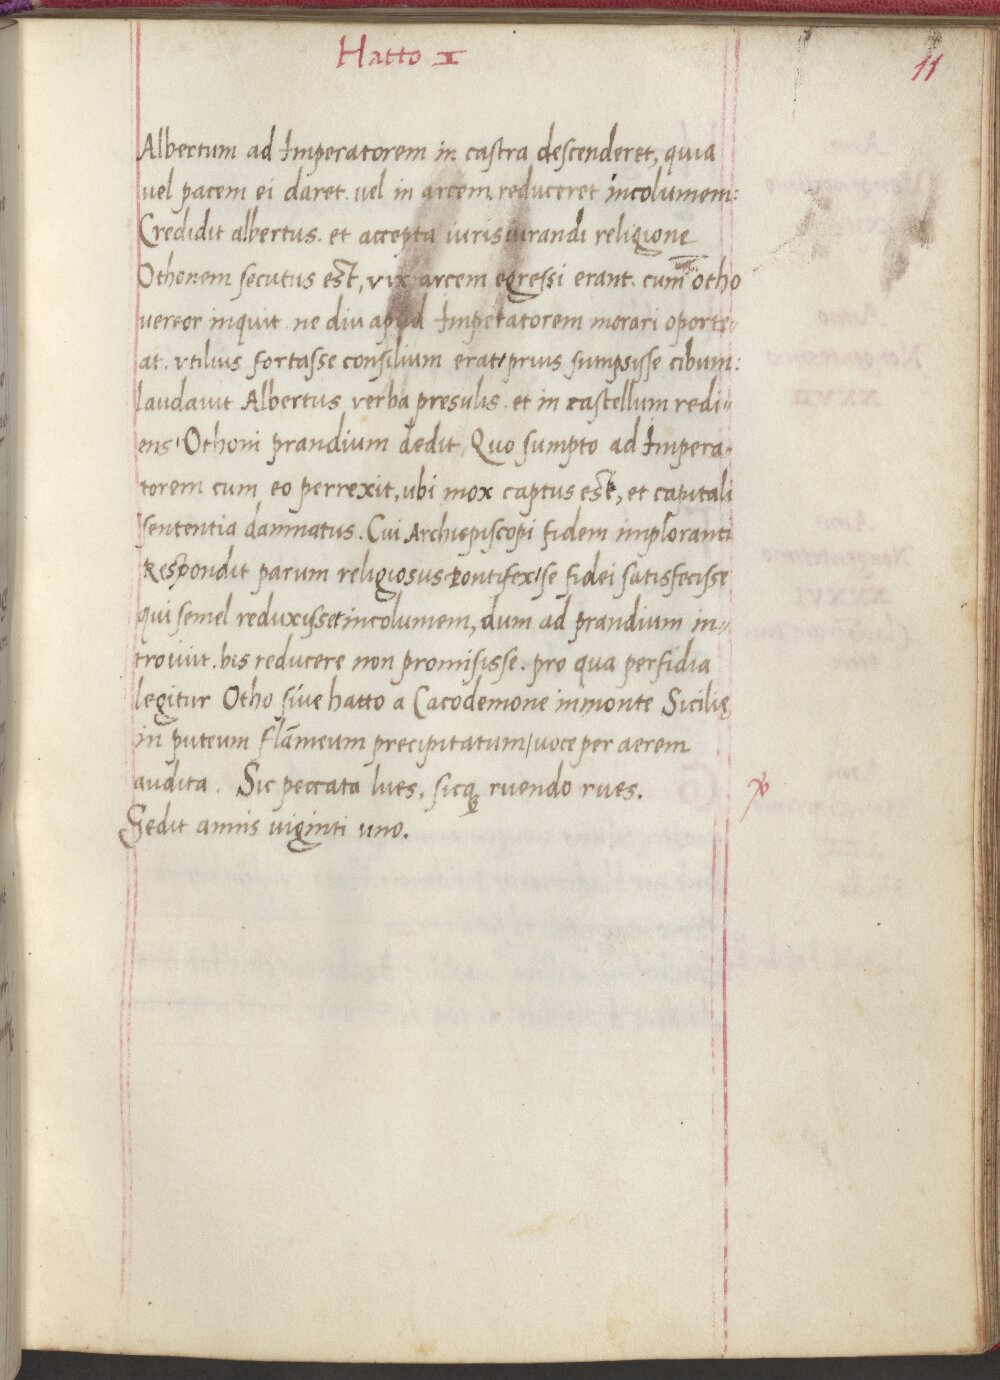 Hatto I
11
Albertum ad Imperatorem in castra descenderet, quia
uel pacem ei daret. uel in arcem reduceret incolumem:
Credidit albertus. et accepta iurisiurandi religione
Othonem secutus est, vix arcem egressi erant. cum otho
uereor inquit ne diu apud Imperatorem morari oporte„
at. vtilius fortasse consilium erat prius sumpsisse cibum:
laudauit Albertus verba presulis. et in castellum redi„
ens Othoni prandium dedit, Quo sumpto ad Impera„
torem cum eo perrexit, ubi mox captus est, et capitali
sententia damnatus. Cui Archiepiscopi fidem imploranti
Respondit parum religiosus pontifex se fidei satisfecisse
qui semel reduxisset incolumem, dum ad prandium in„
troiuit. bis reducere non promisisse. pro qua perfidia
legitur Otho siue hatto a Cacodemone in monte Sicilię
in puteum flameum precipitatum/ uoce per aerem
audita. Sic peccata lues, sicq ruendo rues.
Sedit annis uiginti uno.